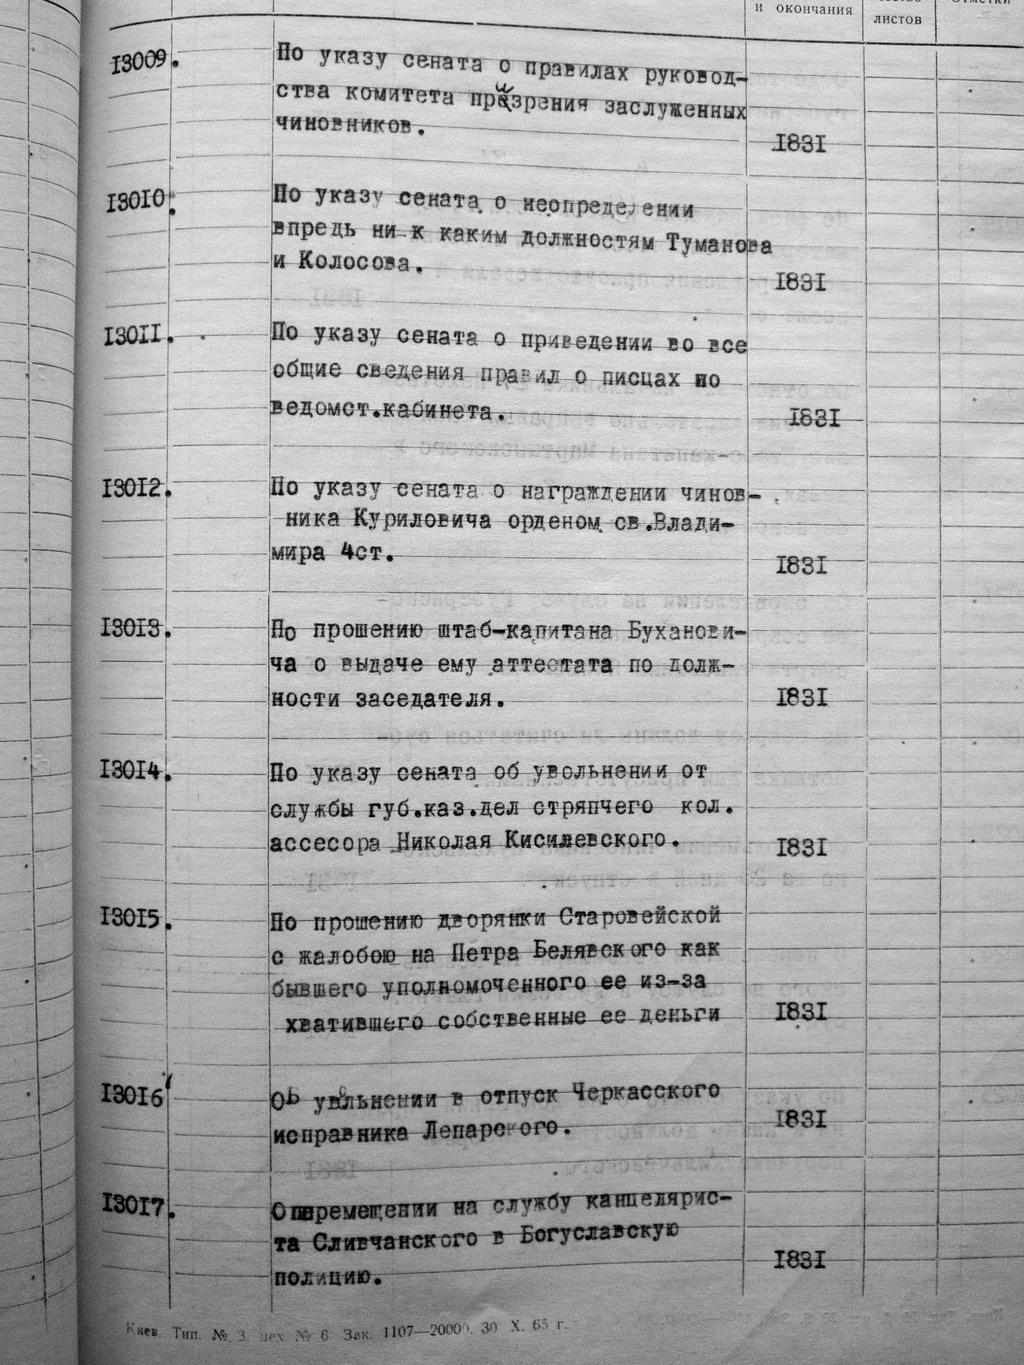 и окончания
листов
13009. По указу сената о правилах руковод-
ства комитета призрения заслуженных
чиновников.
1831
13010. По указу сената о неопределении
впредь ни к каким должностям Туманова
и Колосова.
1831
13011. По указу сената о приведении во все
общие сведения правил о писцах по
ведомст.кабинета.
1831
13012. По указу сената о награждении чинов-
ника Куриловича орденом св.Влади-
мира 4ст.
1831
13013. По прошению штаб-капитана Буханови-
ча о выдаче ему аттестата по долж-
ности заседателя.
1831
13014. По указу сената об увольнении от
службы губ.каз.дел стряпчего кол.
ассесора Николая Кисилевского.
1831
13015. По прошению дворянки Старовейской
с жалобою на Петра Белявского как
бывшего уполномоченного ее из-за
хватившего собственные ее деньги
1831
13016 Об увольнении в отпуск Черкасского
исправника Лепарского.
1831
13017. О перемещении на службу канцелярис-
та Сливчанского в Богуславскую
полицию.
1831
Киев. Тип. № 3. цех № 6. Зак. 1107—20000. 30 X. 65 г.